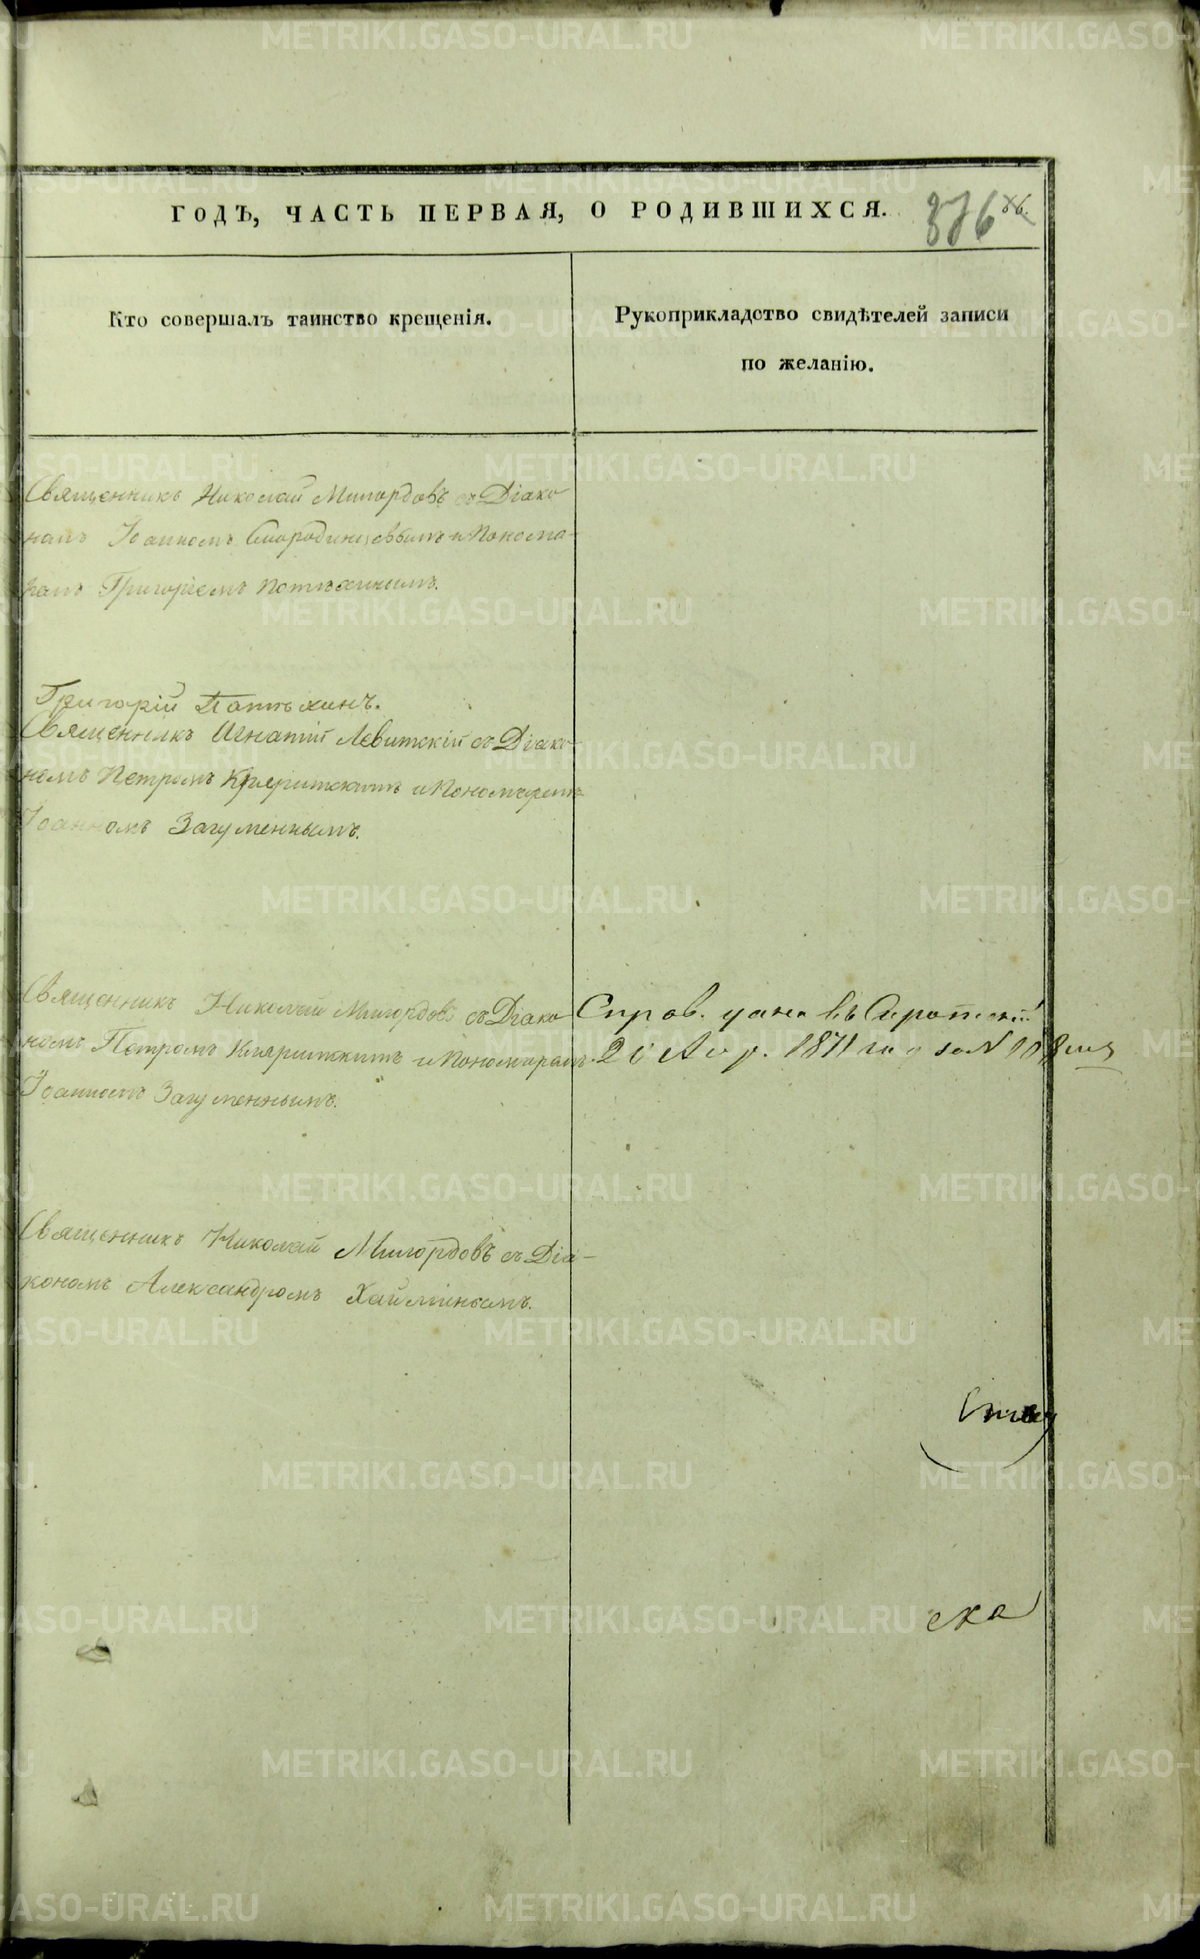 ГОДЪ, ЧАСТЬ ПЕРВАЯ, О РОДИВШИХСЯ. 376 86.
Кто совершалъ таинство крещенія.
Рукоприкладство свидѣтелей записи
по желанію.
Священникъ Николай Милордовъ съ Діако
номъ Іоанномъ Смородинцовымъ и Понома-
ремъ Григоріемъ Потѣхинымъ.
Григорій Патѣхинъ.
Священникъ Игнатій Левитскій съ Діако-
номъ Петромъ и Пономаремъ
Іоанномъ Загуменнымъ.
Священникъ Николай Милордовъ съ Діако
номъ Петромъ и Пономаремъ
Іоанномъ Загуменнымъ.
Справ. дана въ
20 Апр. 1871 года за N 108
Священникъ Николай Милордовъ съ Діа-
кономъ Александромъ
ска
METRIKI.GASO-URAL.RU